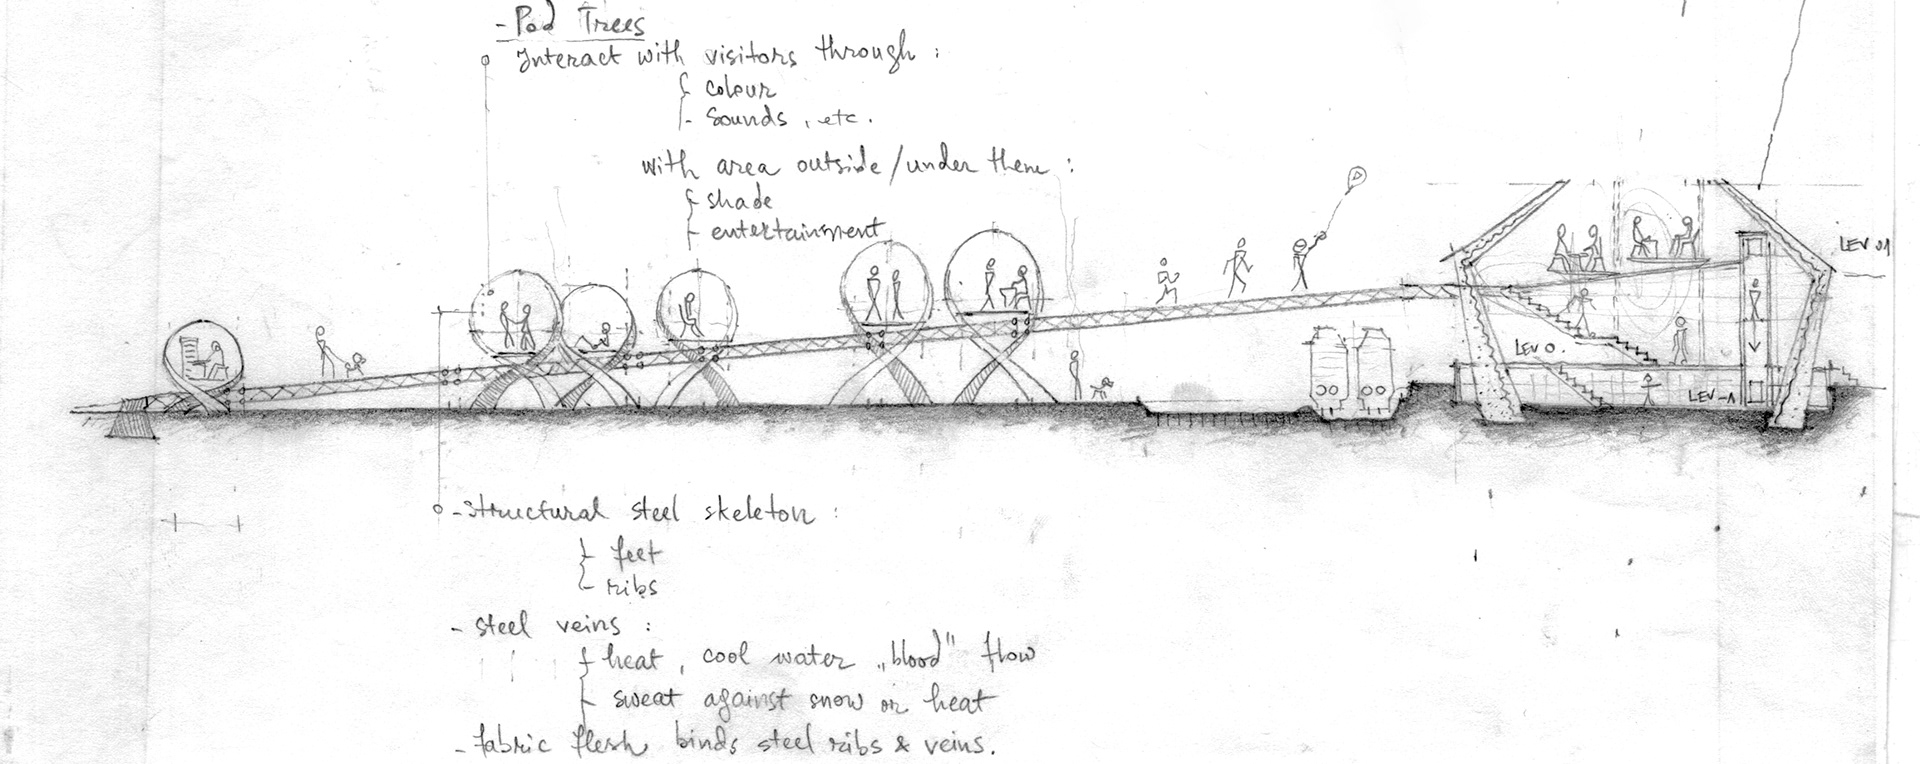 - Pod Trees
Interact with visitors through :
colour
- sounds, etc.
with area outside/under them :
shade
- entertainment
LEV 01
LEV 0.
LEV -1
- structural steel skeleton :
feet
- ribs
- steel veins :
heat, cool water „blood" flow
- sweat against snow or heat
- fabric flesh binds steel ribs & veins.